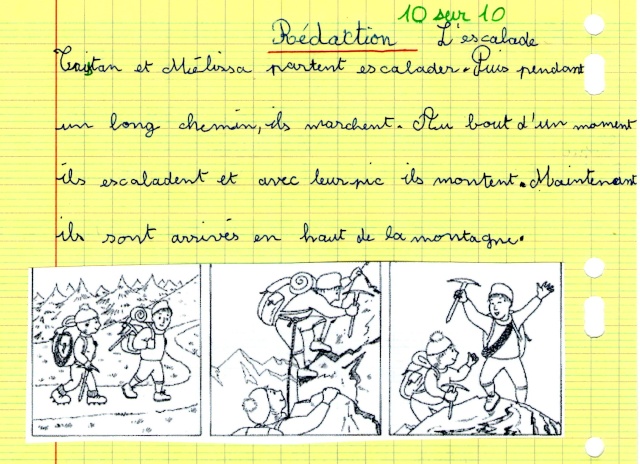 10 sur 10
Rédaction L'escalade
Tristan et Mélissa partent escalader. Puis pendant
un long chemin, ils marchent. Au bout d'un moment
ils escaladent et avec leur pic ils montent. Maintenant
ils sont arrivés en haut de la montagne.